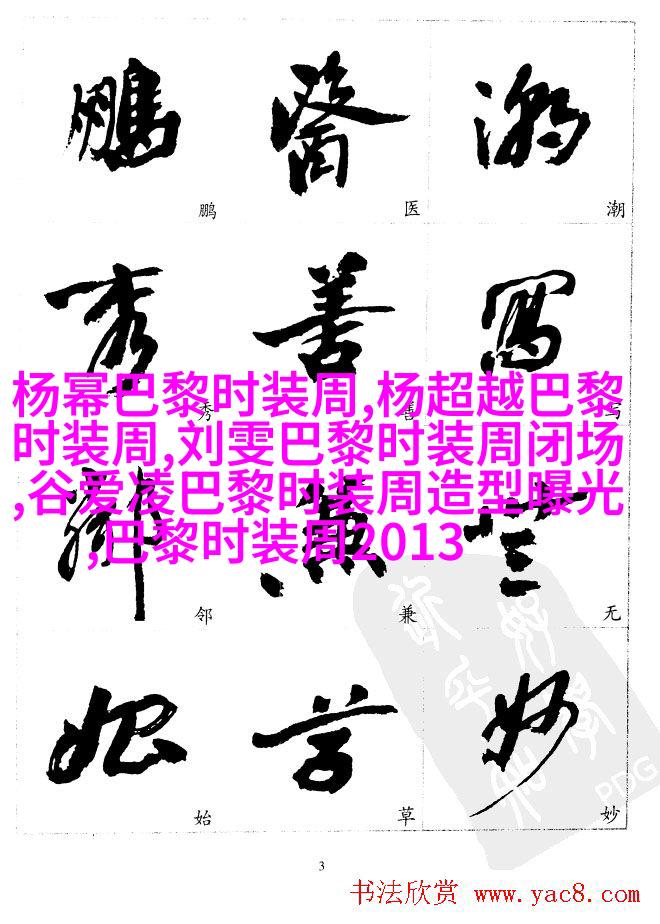 鹏 医 潮
秀 善 写
杨幂巴黎时装周,杨超越巴黎
时装周,刘雯巴黎时装周闭场
,谷爱凌巴黎时装周造型曝光
,巴黎时装周2013
邻 兼 无
始 草 妙
3
PDG
书法欣赏 www.yac8.com